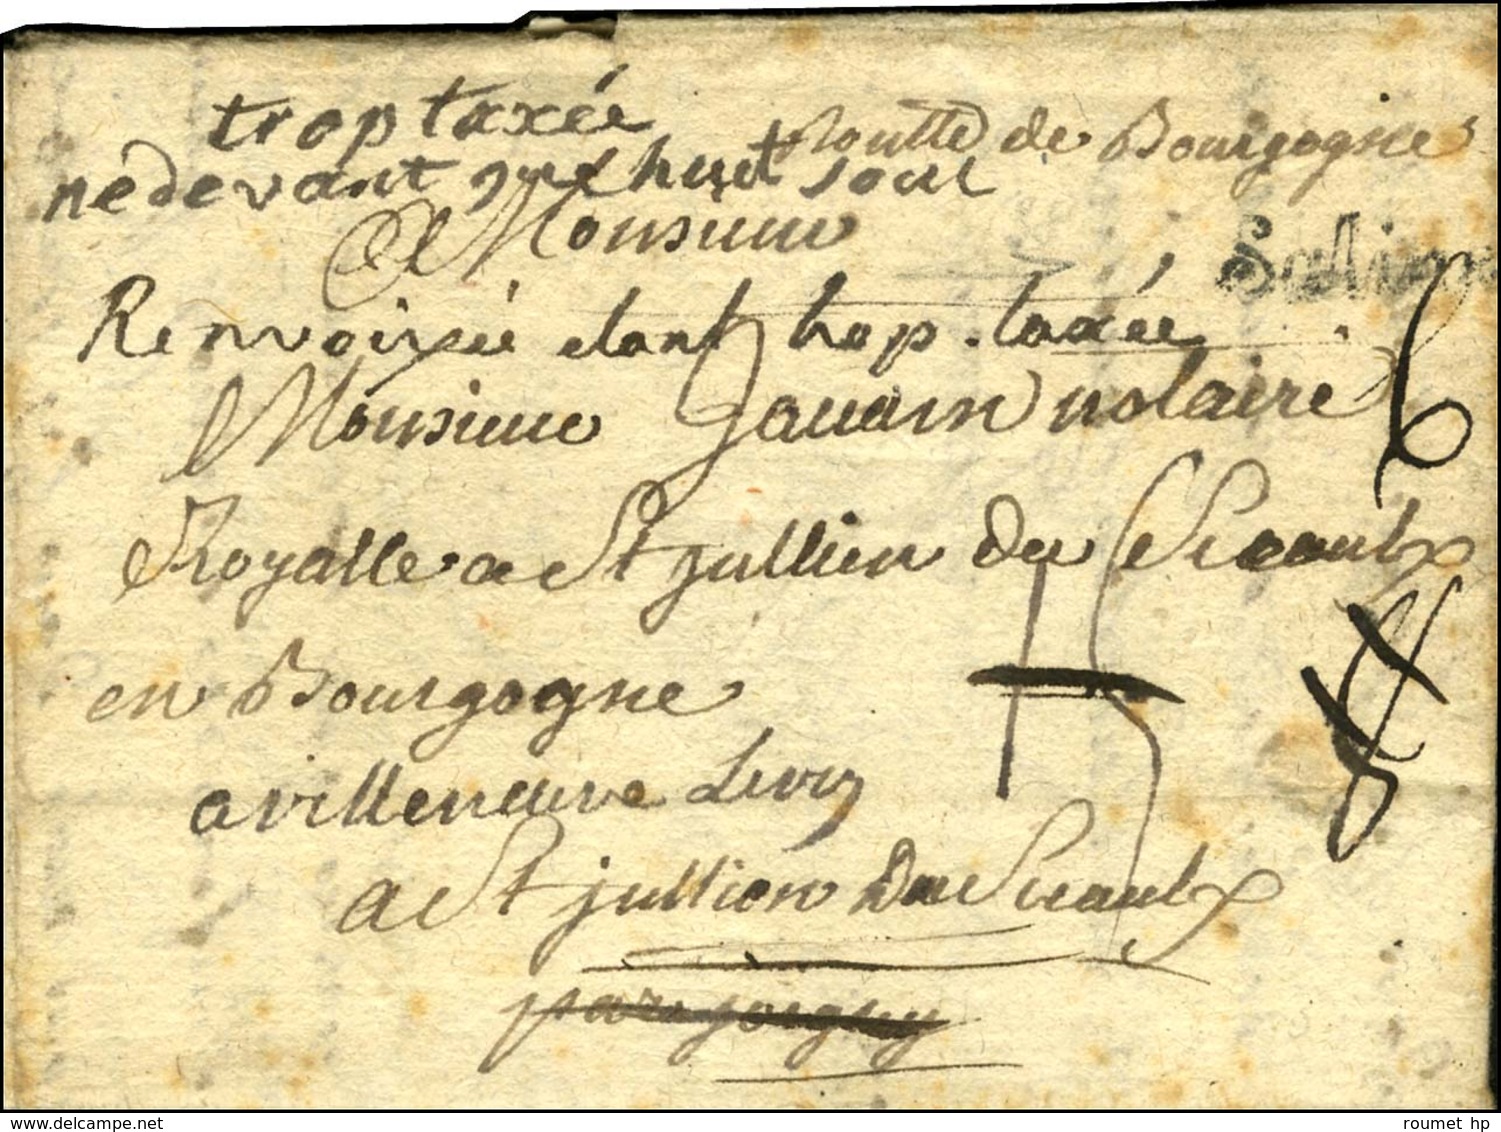 trop taxée
Routte de Bourgogne
ne devant que huit soul
A Monsieur
Renvoisée etant trop taxée
Monsieur Jauain notaire
6
Royalle a St jullien du Sceaulx
en Bourgogne
15
a villeneuve Levrq
a St jullien du Sceaulx
par joigny
roumet hp